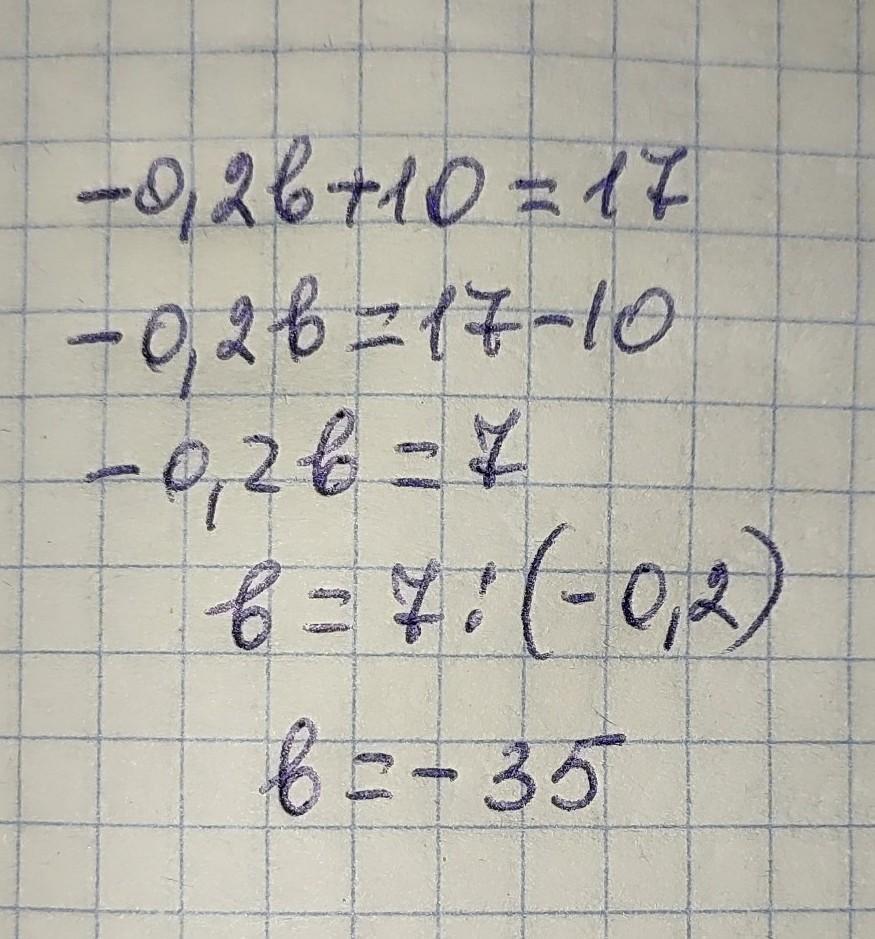 -0,2b+10=17
-0,2b=17-10
-0,2b=7
b=7:(-0,2)
b=-35